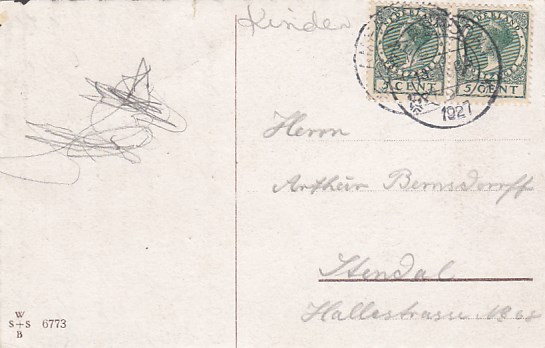 Kinder
NEDERLAND
5 CENT 5 CENT
1927
Herrn
Arthur Bernsdorff
Stendal
Hallestrasse
W
S+S 6773
B